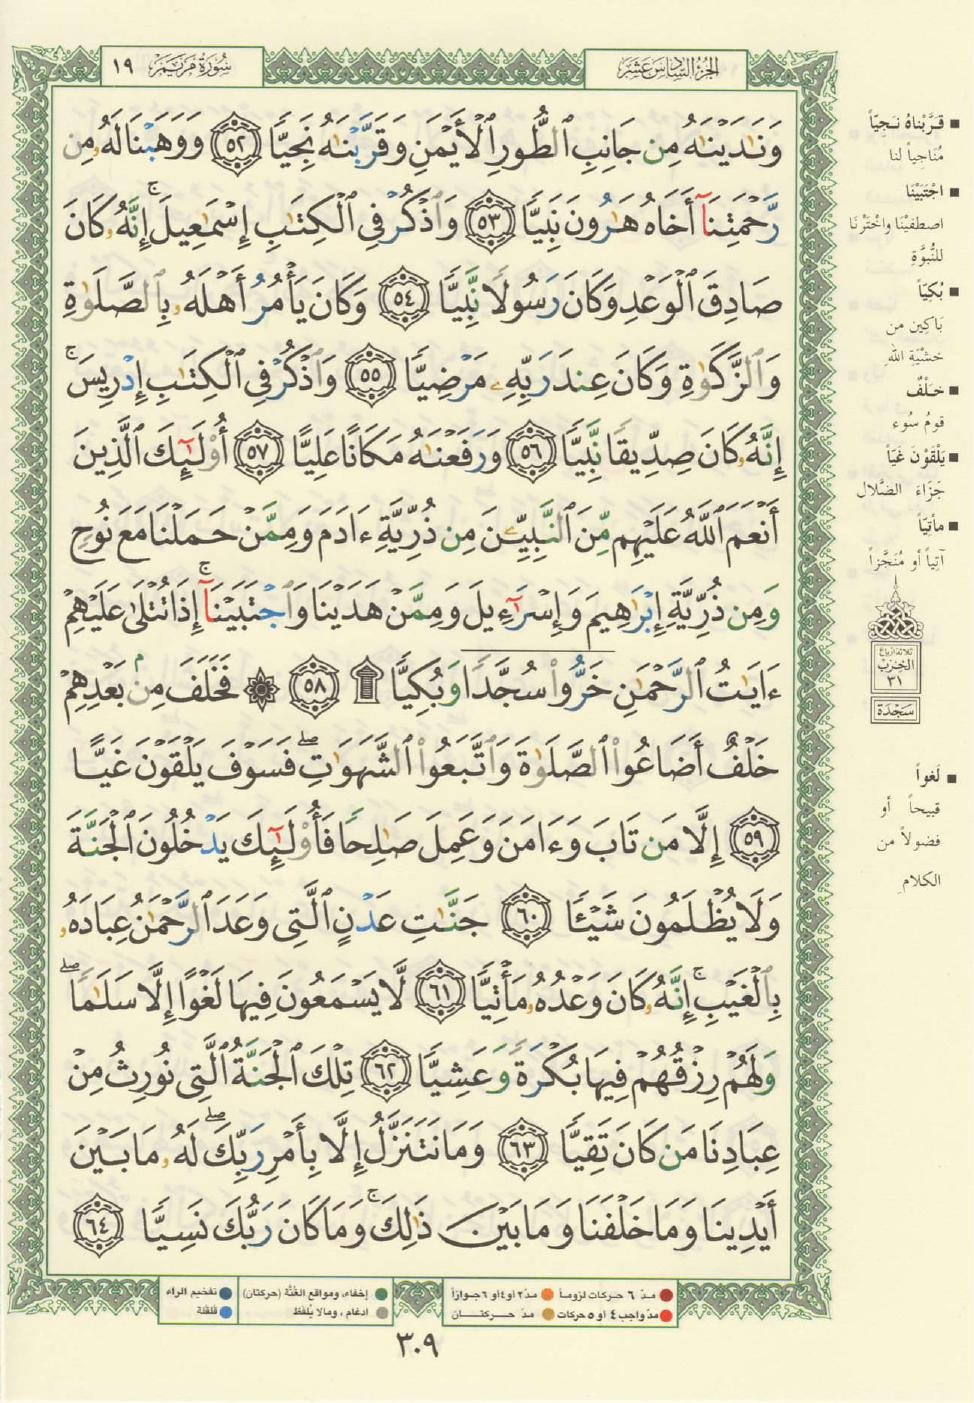 الجزء السادس عشر
سورة مريم ١٩
وَنَٰدَيْنَٰهُ مِن جَانِبِ ٱلطُّورِ ٱلْأَيْمَنِ وَقَرَّبْنَٰهُ نَجِيًّا ٥٢ وَوَهَبْنَا لَهُۥ مِن
رَّحْمَتِنَآ أَخَاهُ هَٰرُونَ نَبِيًّا ٥٣ وَٱذْكُرْ فِى ٱلْكِتَٰبِ إِسْمَٰعِيلَ ۚ إِنَّهُۥ كَانَ
صَادِقَ ٱلْوَعْدِ وَكَانَ رَسُولًا نَّبِيًّا ٥٤ وَكَانَ يَأْمُرُ أَهْلَهُۥ بِٱلصَّلَوٰةِ
وَٱلزَّكَوٰةِ وَكَانَ عِندَ رَبِّهِۦ مَرْضِيًّا ٥٥ وَٱذْكُرْ فِى ٱلْكِتَٰبِ إِدْرِيسَ ۚ
إِنَّهُۥ كَانَ صِدِّيقًا نَّبِيًّا ٥٦ وَرَفَعْنَٰهُ مَكَانًا عَلِيًّا ٥٧ أُو۟لَٰٓئِكَ ٱلَّذِينَ
أَنْعَمَ ٱللَّهُ عَلَيْهِم مِّنَ ٱلنَّبِيِّۦنَ مِن ذُرِّيَّةِ ءَادَمَ وَمِمَّنْ حَمَلْنَا مَعَ نُوحٍ
وَمِن ذُرِّيَّةِ إِبْرَٰهِيمَ وَإِسْرَٰٓءِيلَ وَمِمَّنْ هَدَيْنَا وَٱجْتَبَيْنَآ ۚ إِذَا تُتْلَىٰ عَلَيْهِمْ
ءَايَٰتُ ٱلرَّحْمَٰنِ خَرُّوا۟ سُجَّدًا وَبُكِيًّا ۩ ٥٨ ۞ فَخَلَفَ مِنۢ بَعْدِهِمْ
خَلْفٌ أَضَاعُوا۟ ٱلصَّلَوٰةَ وَٱتَّبَعُوا۟ ٱلشَّهَوَٰتِ ۖ فَسَوْفَ يَلْقَوْنَ غَيًّا
٥٩ إِلَّا مَن تَابَ وَءَامَنَ وَعَمِلَ صَٰلِحًا فَأُو۟لَٰٓئِكَ يَدْخُلُونَ ٱلْجَنَّةَ
وَلَا يُظْلَمُونَ شَيْـًٔا ٦٠ جَنَّٰتِ عَدْنٍ ٱلَّتِى وَعَدَ ٱلرَّحْمَٰنُ عِبَادَهُۥ
بِٱلْغَيْبِ ۚ إِنَّهُۥ كَانَ وَعْدُهُۥ مَأْتِيًّا ٦١ لَّا يَسْمَعُونَ فِيهَا لَغْوًا إِلَّا سَلَٰمًا ۖ
وَلَهُمْ رِزْقُهُمْ فِيهَا بُكْرَةً وَعَشِيًّا ٦٢ تِلْكَ ٱلْجَنَّةُ ٱلَّتِى نُورِثُ مِنْ
عِبَادِنَا مَن كَانَ تَقِيًّا ٦٣ وَمَا نَتَنَزَّلُ إِلَّا بِأَمْرِ رَبِّكَ ۖ لَهُۥ مَا بَيْنَ
أَيْدِينَا وَمَا خَلْفَنَا وَمَا بَيْنَ ذَٰلِكَ ۚ وَمَا كَانَ رَبُّكَ نَسِيًّا ٦٤
قَرَّبْناهُ نَجِيّاً
مُنَاجِياً لنا
اجْتَبَيْنَا
اصطفيْنَا واخْتَرْنَا
للنُّبُوَّةِ
بُكِيّاً
بَاكِين من
خشْيَةِ اللهِ
خَلْفٌ
قومُ سُوء
يَلْقَوْنَ غَيّاً
جَزَاءَ الضَّلال
مأتِيّاً
آتِياً أو مُنَجَّزاً
ثلاثة أرباع
الحزب
٣١
سَجْدَة
لَغواً
قبيحاً أو
فضولاً من
الكلام
مدّ ٦ حركات لزوماً مدّ ٢ او ٤ او ٦ جوازاً
مدّ واجب ٤ او ٥ حركات مدّ حركتان
إخفاء، ومواقع الغُنَّة (حركتان) تفخيم الراء
ادغام ، ومالا يُلفظ قلقلة
٣٠٩